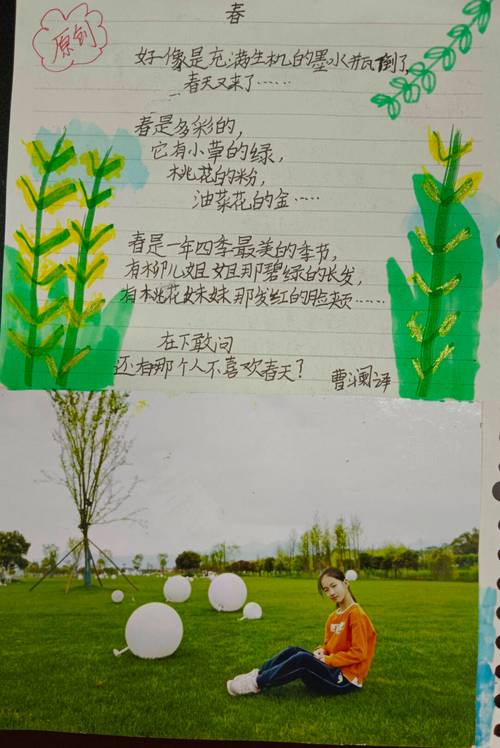 春
原创
好像是充满生机的墨水瓶倒了,
春天又来了……
春是多彩的,
它有小草的绿,
桃花的粉,
油菜花的金……
春是一年四季最美的季节,
有柳儿姐姐那碧绿的长发,
有桃花妹妹那发红的脸颊……
在下敢问
还有那个人不喜欢春天?
曹斗阑译